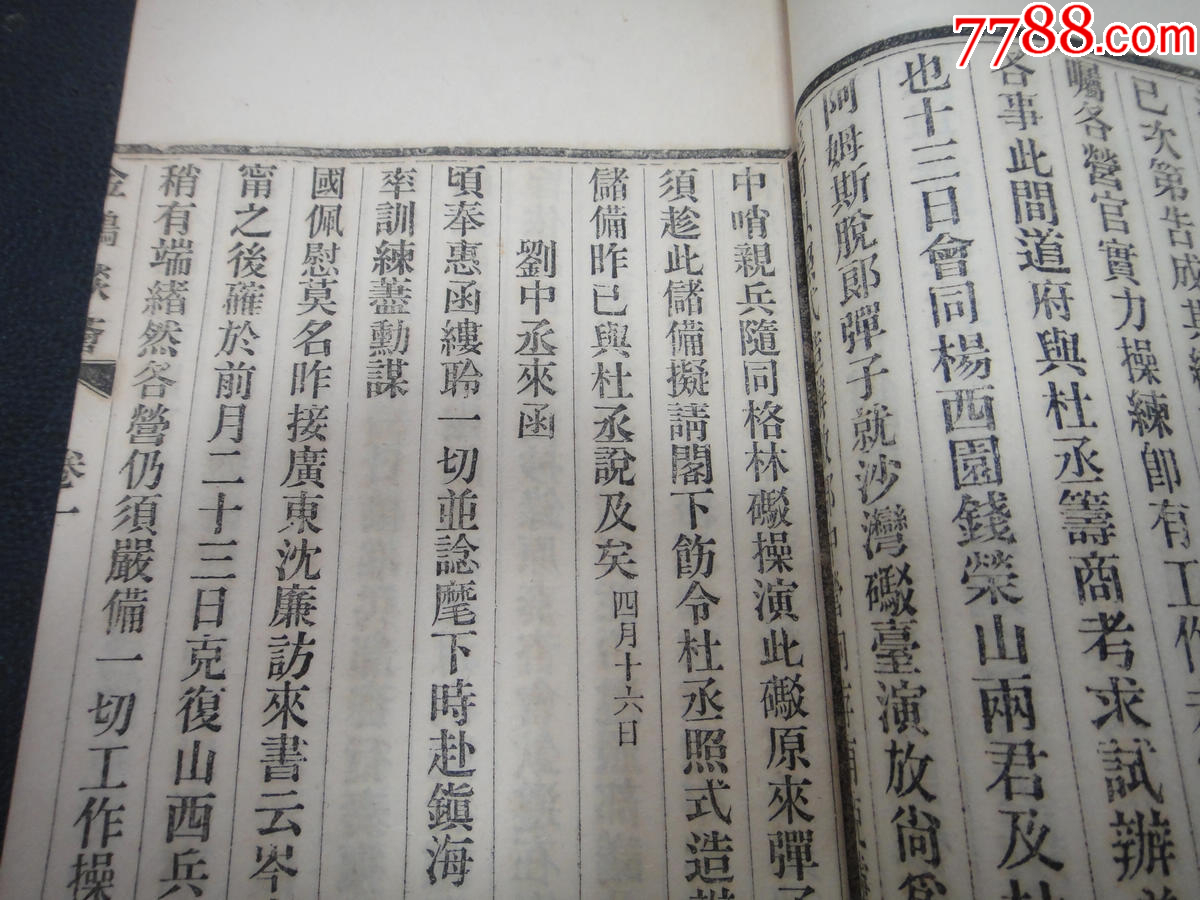 7788.com
已次第告成其
囑各營官實力操練即有工作
各事此間道府與杜丞籌商考求試辦
也十三日會同楊西園錢榮山兩君及杜
阿姆斯脫郎彈子就沙灣礮臺演放尚
中哨親兵隨同格林礮操演此礮原來彈子
須趁此儲備擬請閣下飭令杜丞照式造
儲備昨已與杜丞說及矣四月十六日
劉中丞來函
頃奉惠函縷聆一切並諗麾下時赴鎭海
率訓練藎勳謀
國佩慰莫名昨接廣東沈廉訪來書云岑
甯之後確於前月二十三日克復山西兵
稍有端緒然各營仍須嚴備一切工作操
金雞談薈
卷一